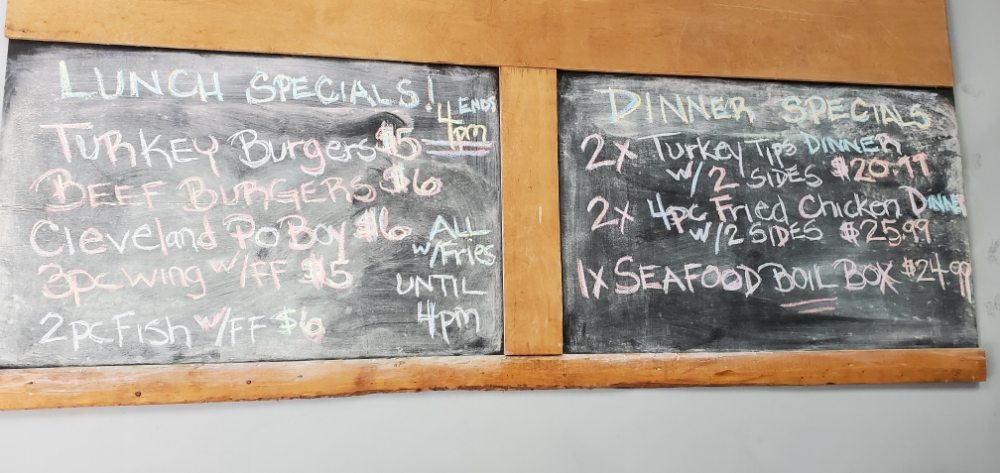 LUNCH SPECIALS!
ENDS
4pm
TURKEY Burgers $5
BEEF BURGERS $6
Cleveland Po Boy $6
3pc wing w/FF $5
2pc Fish w/FF $6
ALL
w/Fries
UNTIL
4pm
DINNER SPECIALS
2x Turkey Tips DINNER
w/ 2 SIDES $20.99
2x 4pc Fried Chicken DINNER
w/2 SIDES $25.99
1x SEAFOOD BOIL BOX $24.99